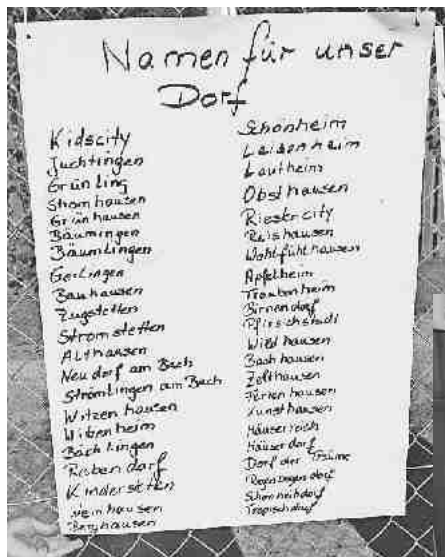 Namen für unser
Dorf
Kidscity
Juchtingen
Grünling
Stromhausen
Grünhausen
Bäumingen
Bäumlingen
Geilingen
Bauhausen
Zugstetten
Stromstetten
Althausen
Neudorf am Bach
Strömlingen am Bach
Witzenhausen
Wibenheim
Bachlingen
Rabendorf
Kinderstetten
Weinhausen
Berghausen
Schönheim
Leisenheim
Lautheim
Obsthausen
Riestercity
Reishausen
Wohlfühlhausen
Apfelheim
Traubenheim
Birnendorf
Pfirsichstadt
Wildhausen
Bachhausen
Zelthausen
Ferienhausen
Kunsthausen
Häuserreich
Häuserdorf
Dorf der Träume
Regenbogendorf
Schönheitdorf
Tropischdorf